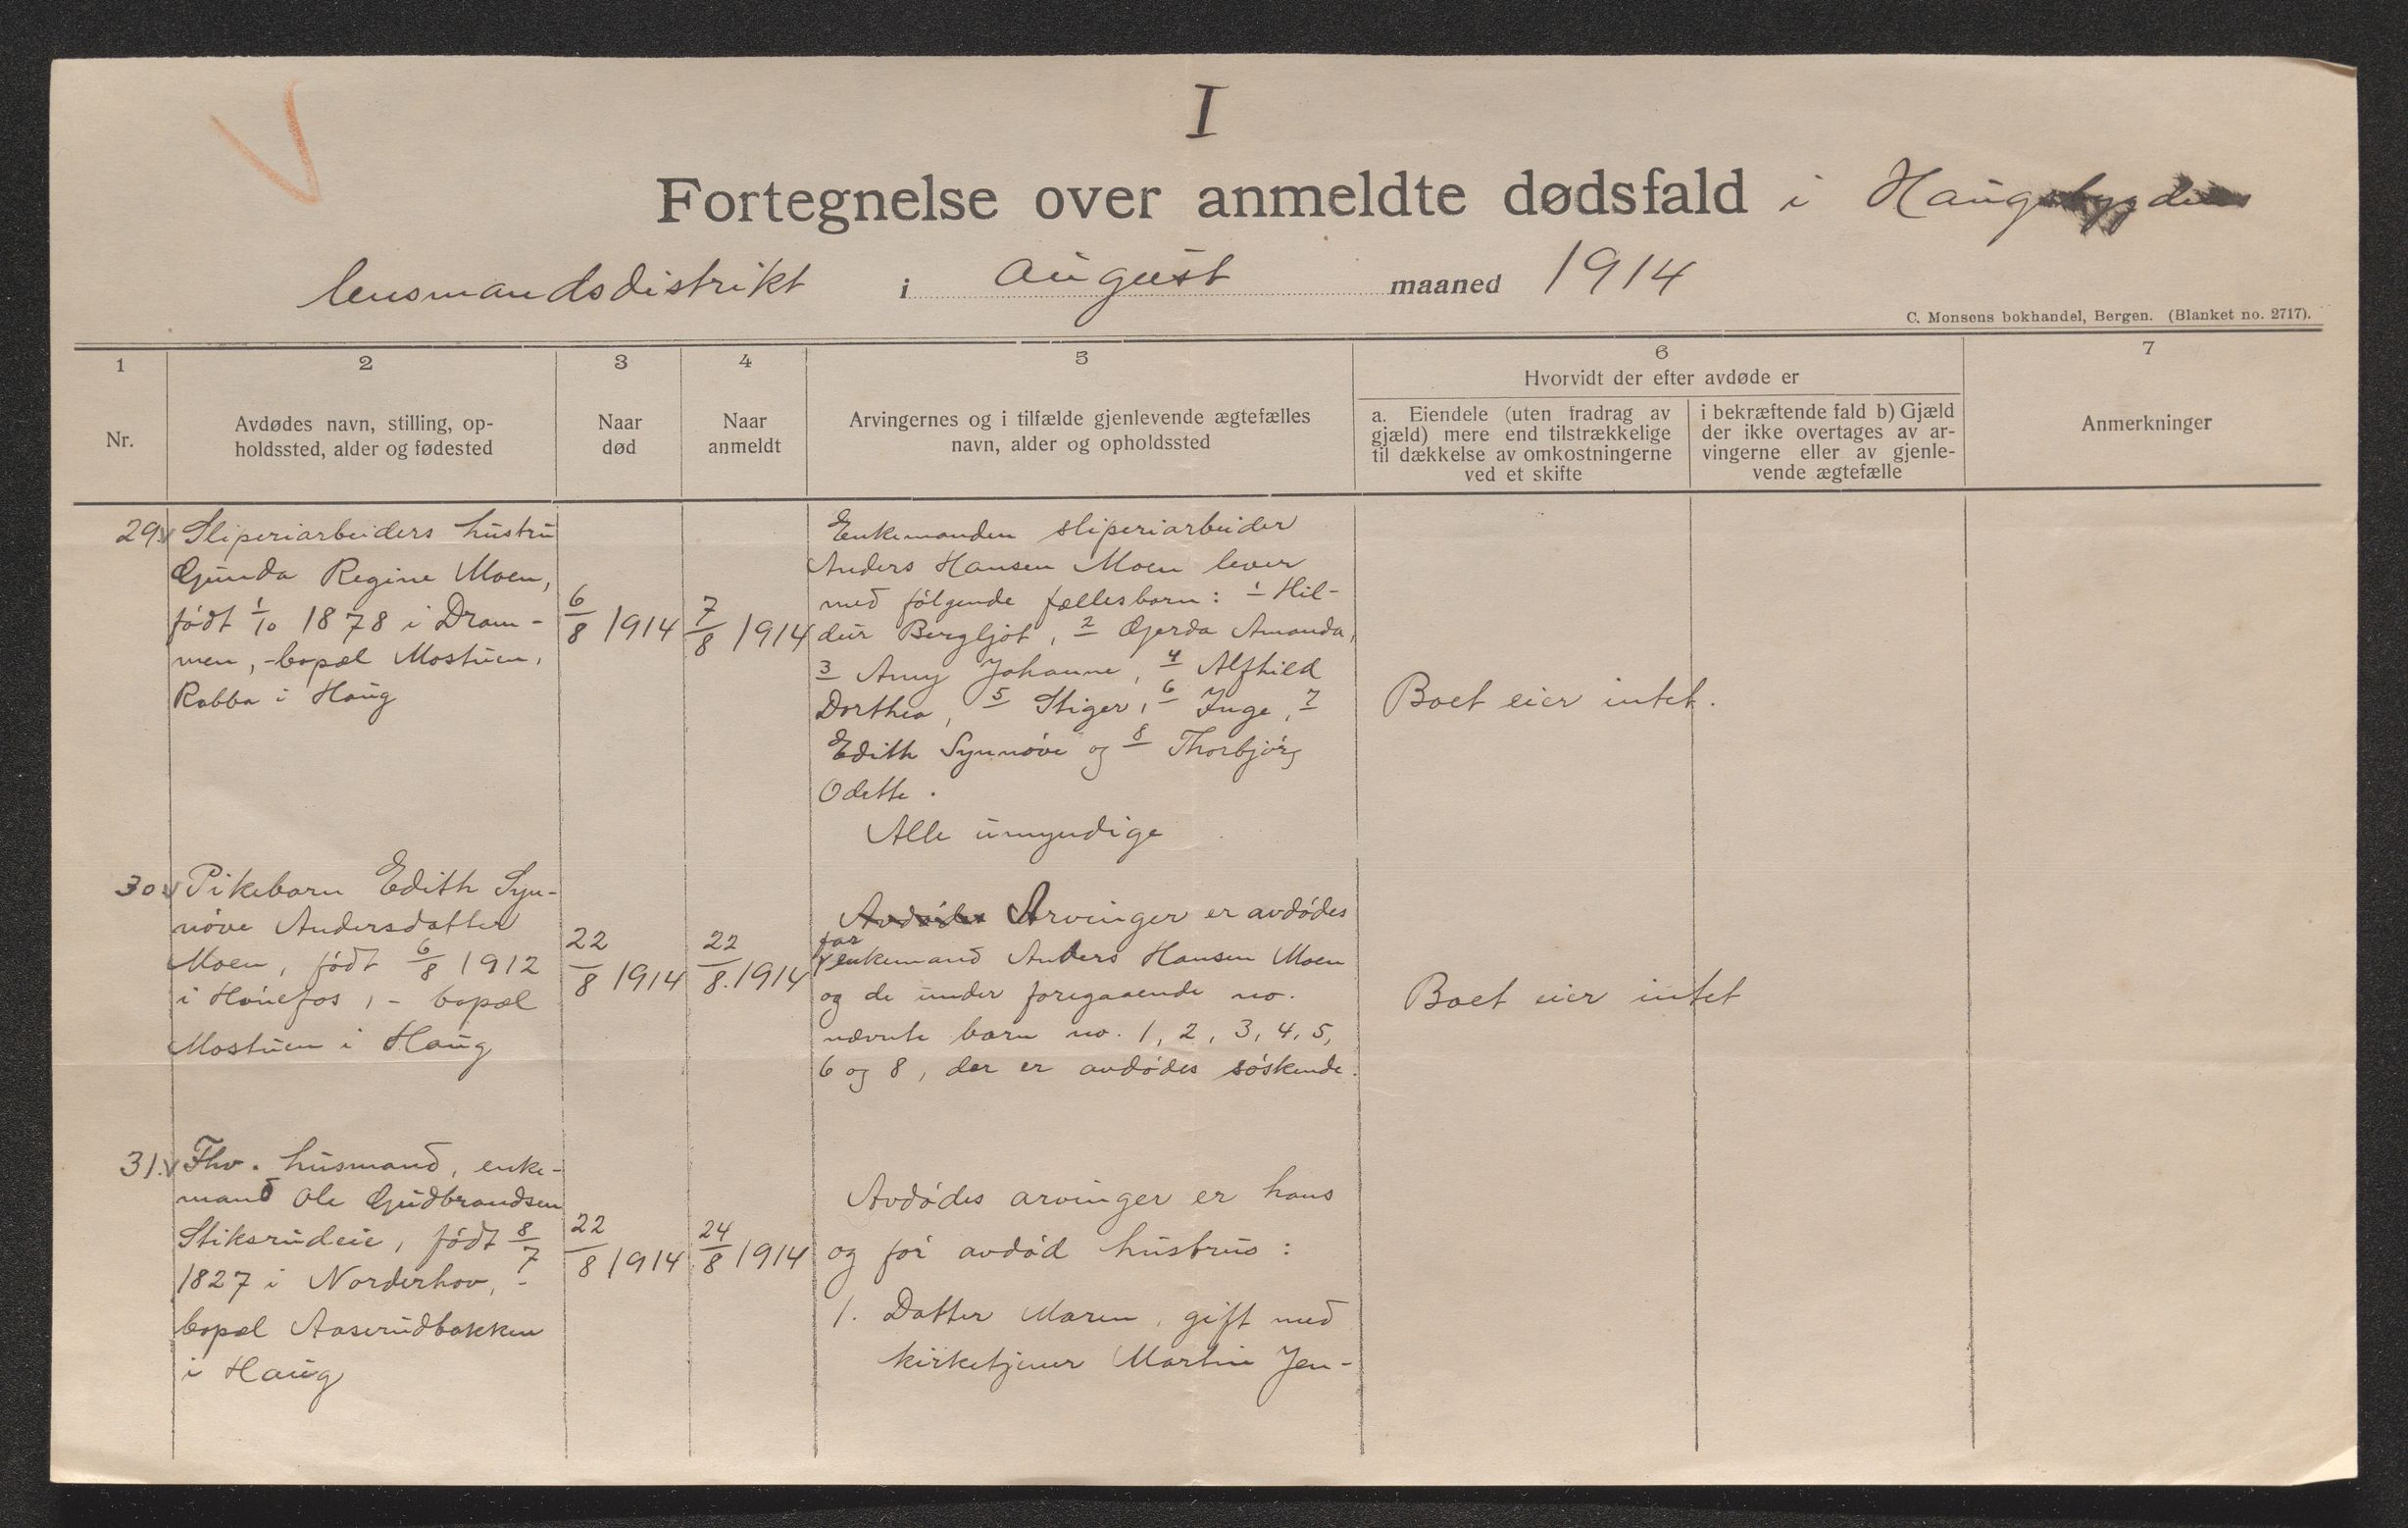 I
Fortegnelse over anmeldte dødsfald i Haug
lensmandsdistrikt i august maaned 1914
C. Monsens bokhandel, Bergen. (Blanket no. 2717).
1
Nr.
2
Avdødes navn, stilling, op-
holdssted, alder og fødested
3
Naar
død
4
Naar
anmeldt
5
Arvingernes og i tilfælde gjenlevende ægtefælles
navn, alder og opholdssted
6
Hvorvidt der efter avdøde er
a. Eiendele (uten fradrag av
gjæld) mere end tilstrækkelige
til dækkelse av omkostningerne
ved et skifte
i bekræftende fald b) Gjæld
der ikke overtages av ar-
vingerne eller av gjenle-
vende ægtefælle
7
Anmerkninger
29.
Sliperiarbeiders hustru
Gunda Regine Moen,
født 1/10 1878 i Dram-
men, - bopæl Mostuen,
Rabba i Haug
6/8 1914
7/8 1914
Enkemanden sliperiarbeider
Anders Hansen Moen lever
med følgende fællesbarn: 1 Hil-
dur Bergljot, 2 Gjerda Amanda,
3 Amy Johanne, 4 Alfhild
Dorthea, 5 Stiger, 6 Inge, 7
Edith Synnøve og 8 Thorbjørg
Odette.
Alle umyndige
Boet eier intet.
30
Pikebarn Edith Syn-
nøve Andersdatter
Moen, født 6/8 1912
i Hønefos, - bopæl
Mostuen i Haug
22/8 1914
22/8. 1914
Avdødes Arvinger er avdødes
far
enkemand Anders Hansen Moen
og de under foregaaende no.
nævnte barn no. 1, 2, 3, 4, 5,
6 og 8, der er avdødes søskende.
Boet eier intet
31.
Fhv. husmand, enke-
mand Ole Gudbrandsen
Stiksrudeie, født 8/7
1827 i Norderhov, -
bopæl Aaserudbakken
i Haug
22/8 1914
24/8 1914
Avdødes arvinger er hans
og før avdød hustrus:
1. Datter Maren, gift med
kirketjener Martin Jen-